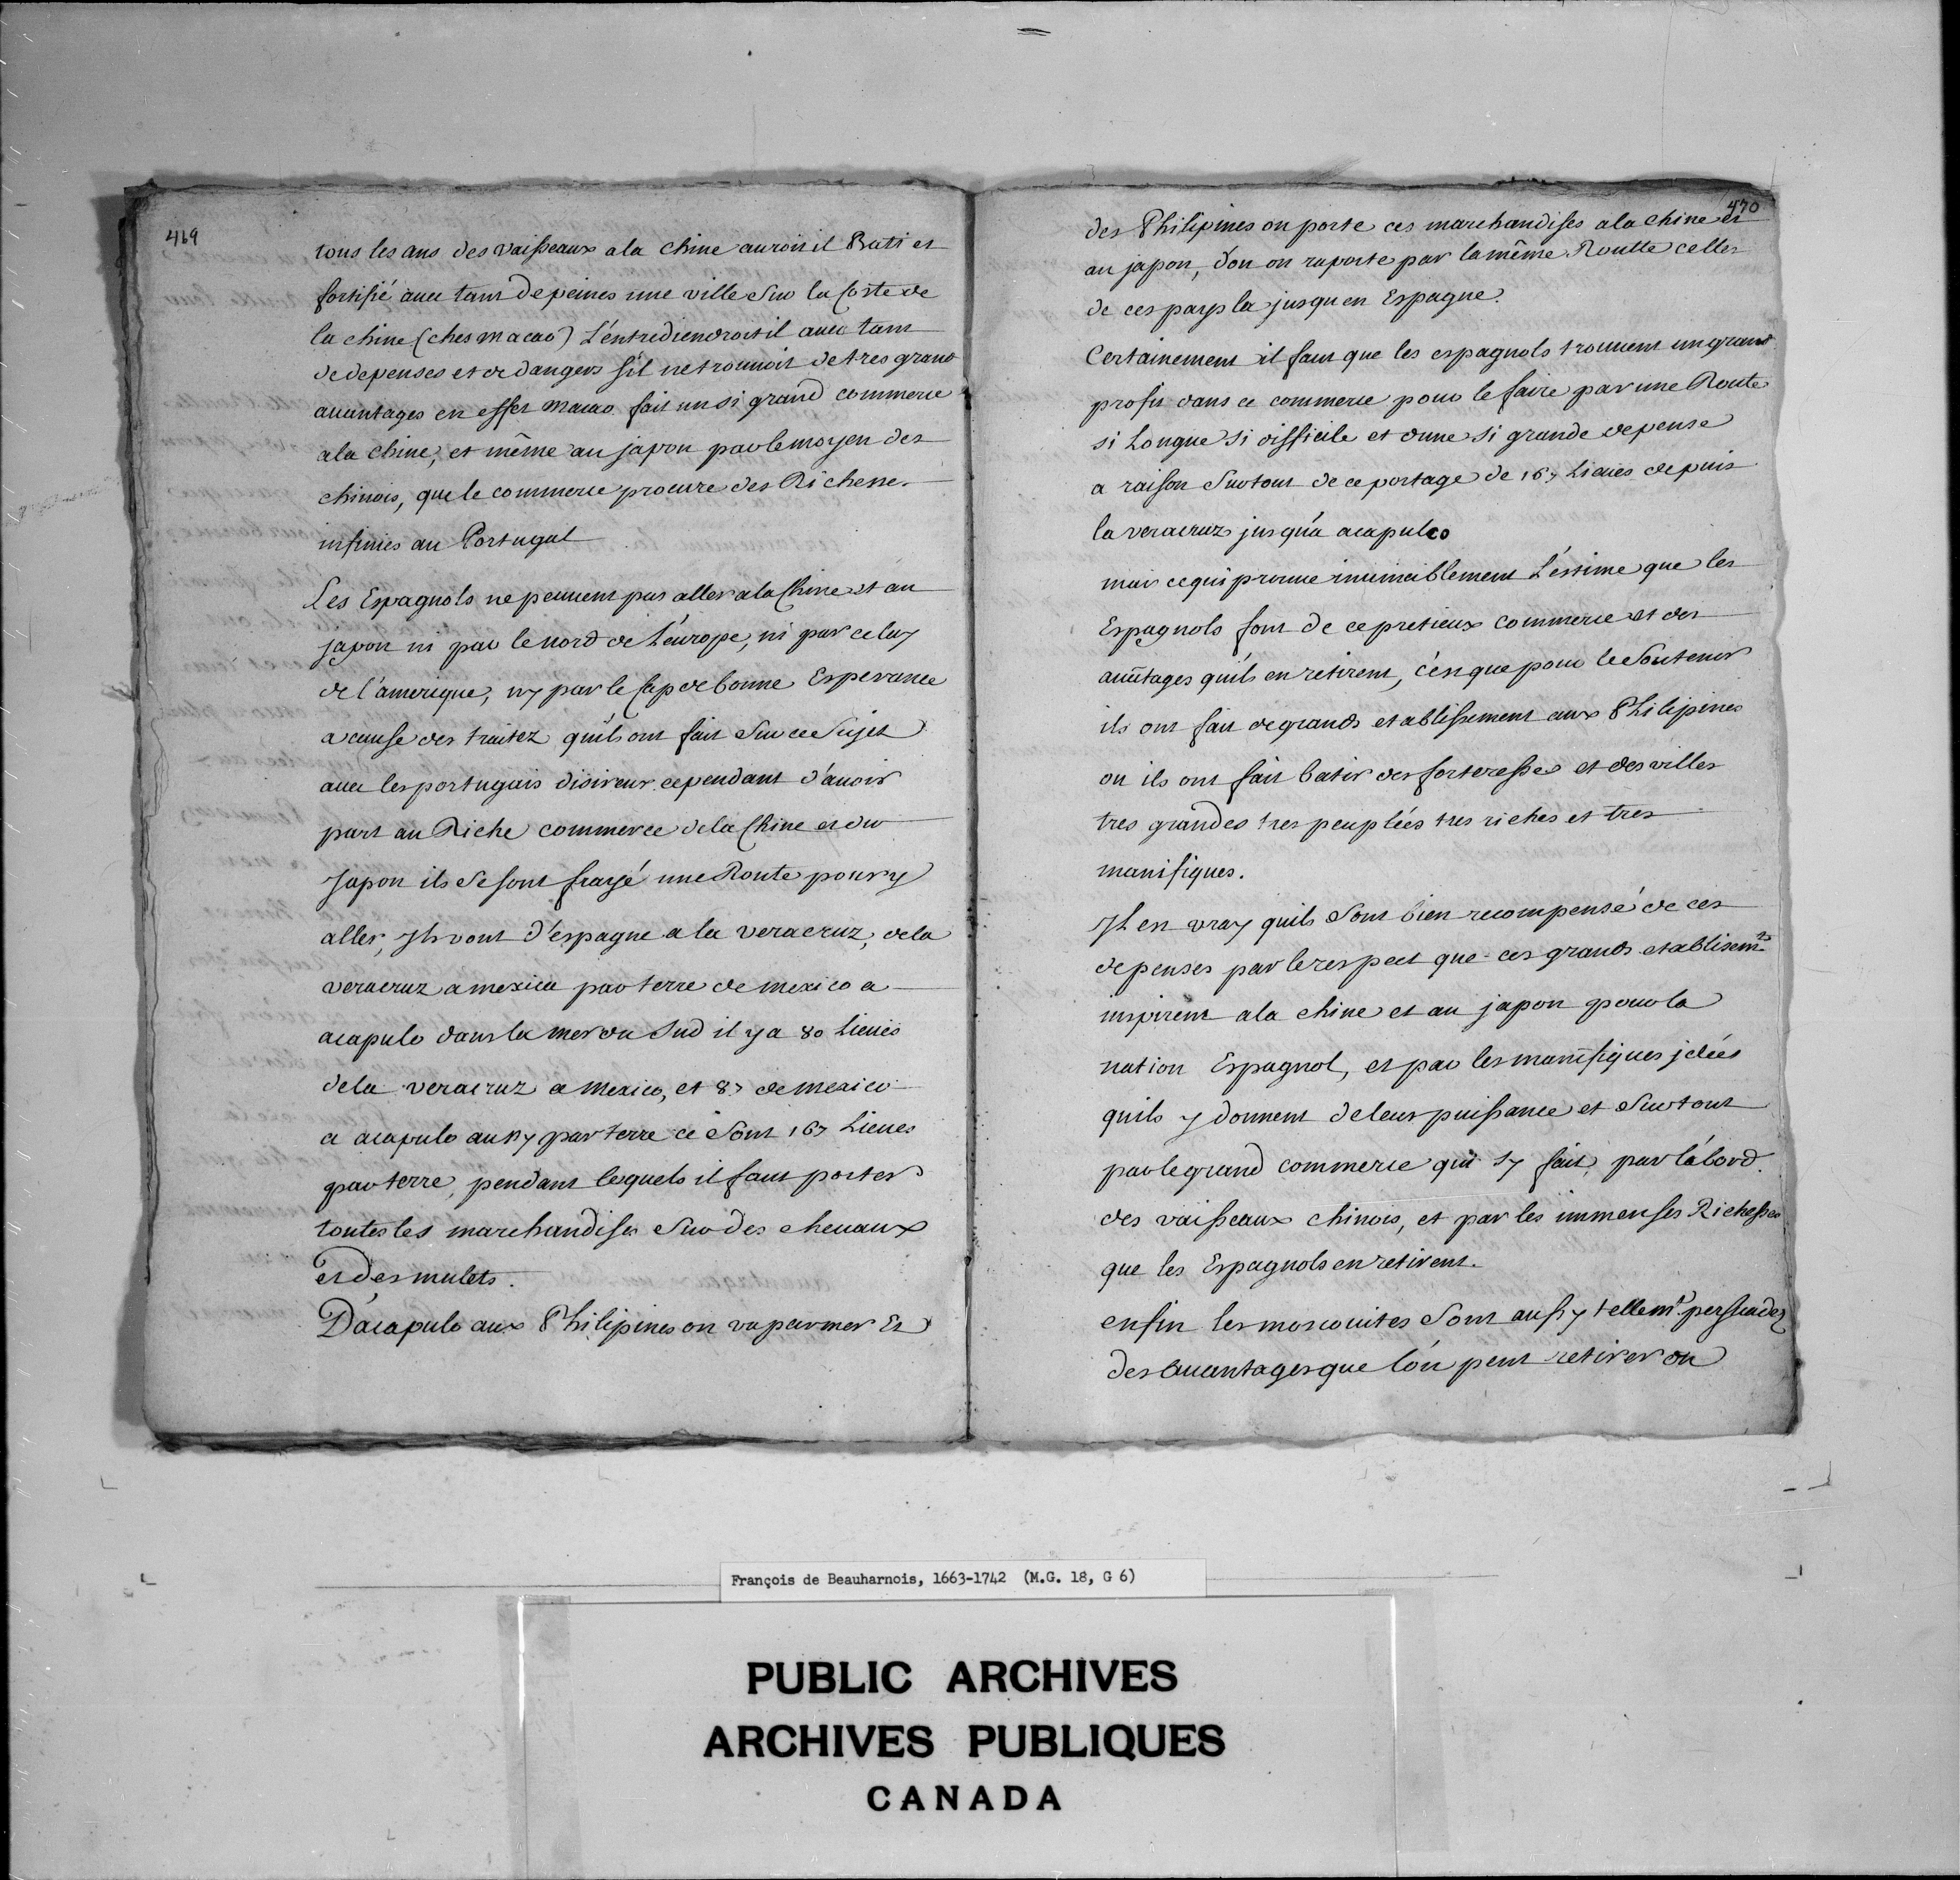 469
tous les ans des vaisseaux a la chine auroit il Bati et
fortifié auec tant de peines une ville sur la Coste de
la chine (ches macao) L'entrediendroit il auec tant
de depenses et de dangers s'il ne trouuoit de tres grand
auantages en effet macao fait un si grand commerce
a la chine, et même au japon par le moyen des
chinois, que le commerce procure des Richesse
infinies au Portugal
Les Espagnols ne peuuent pas aller a la Chine et au
japon ni par le nord de L'europe, ni par celuy
de l'amerique, ny par le Cap de bonne Esperance
a cause des traitez quils ont fait sur ce Sujet
auec les portugais disireux cependant d'auoir
part au Riche commerce de la Chine et du
Japon ils se sont frayé une Route pour y
aller, Ils vont d'espagne a la veracruz, de la
veracruz a mexico par terre de mexico a
acapulo dans la mer du Sud il y a 80 Lieues
de la veracruz a mexico, et 87 de mexico
a acapulo aussy par terre ce sont 167 Lieues
par terre, pendant lequels il faut porter
toutes les marchandises sur des cheuaux
et des mulets.
D'acapulo aux Philipines on va par mer Et
470
des Philipines on porte ces marchandises a la chine et
au japon, d'ou on raporte par la même Routte celles
de ces pays la jusqu en Espagne.
Certainement il faut que les espagnols trouuent un grand
profit dans ce commerce pour le faire par une Route
si Longue si difficile et dune si grande depense
a raison surtout de ce portage de 167 Lieues depuis
la veracruz jusqu'a acapulco
mais ce qui prouue inuinciblement L'estime que les
Espagnols font de ce pretieux commerce et des
auütages quils en retirent, c'est que pour le soutenir
ils ont fait de grands etablissement aux Philipines
ou ils ont fait batir des forteresses et des villes
tres grandes tres peuplées tres riches et tres
manifiques.
Il est vray quils sont bien recompensé de ces
depenses par le respect que ces grands etablisemts
inspirent a la chine et au japon pour la
nation Espagnol, et par les manifiques jdées
quils y donnent de leur puissance et surtout
par le grand commerce qui sy fait, par l'abord
des vaisseaux chinois, et par les immenses Richesses
que les Espagnols en retirent.
enfin les moscouites sont aussy tellemt persuadez
des auantages que l'on peut retirer du
François de Beauharnois, 1663-1742 (M.G. 18, G 6)
PUBLIC ARCHIVES
ARCHIVES PUBLIQUES
CANADA